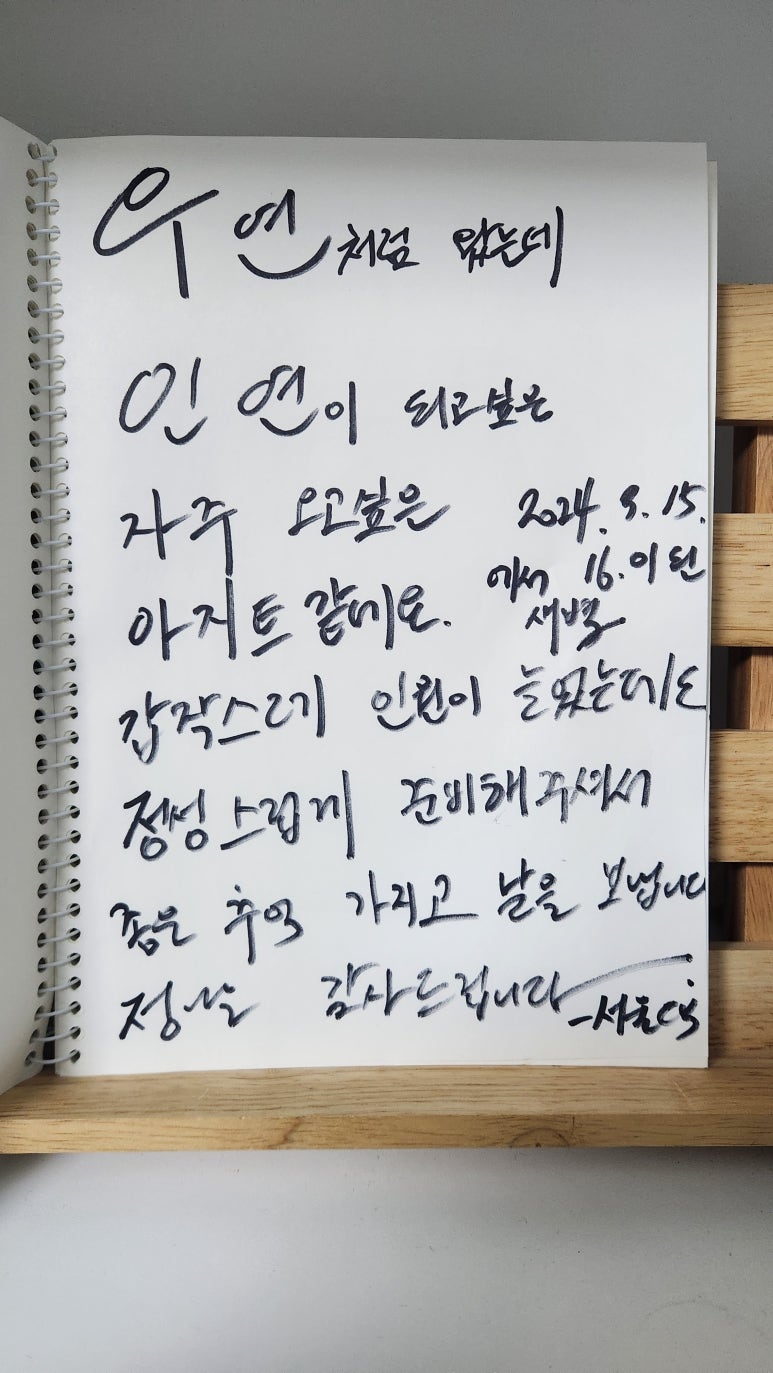 우연처럼 왔는데
인연이 되고싶은
자주 오고싶은
아지트 같네요.
2024. 9. 15.
에서 16. 이 된
새벽
갑작스레 인원이 늘었는데도
정성스럽게 준비해주셔서
좋은 추억 가지고 날을 보냅니다
정말 감사드립니다